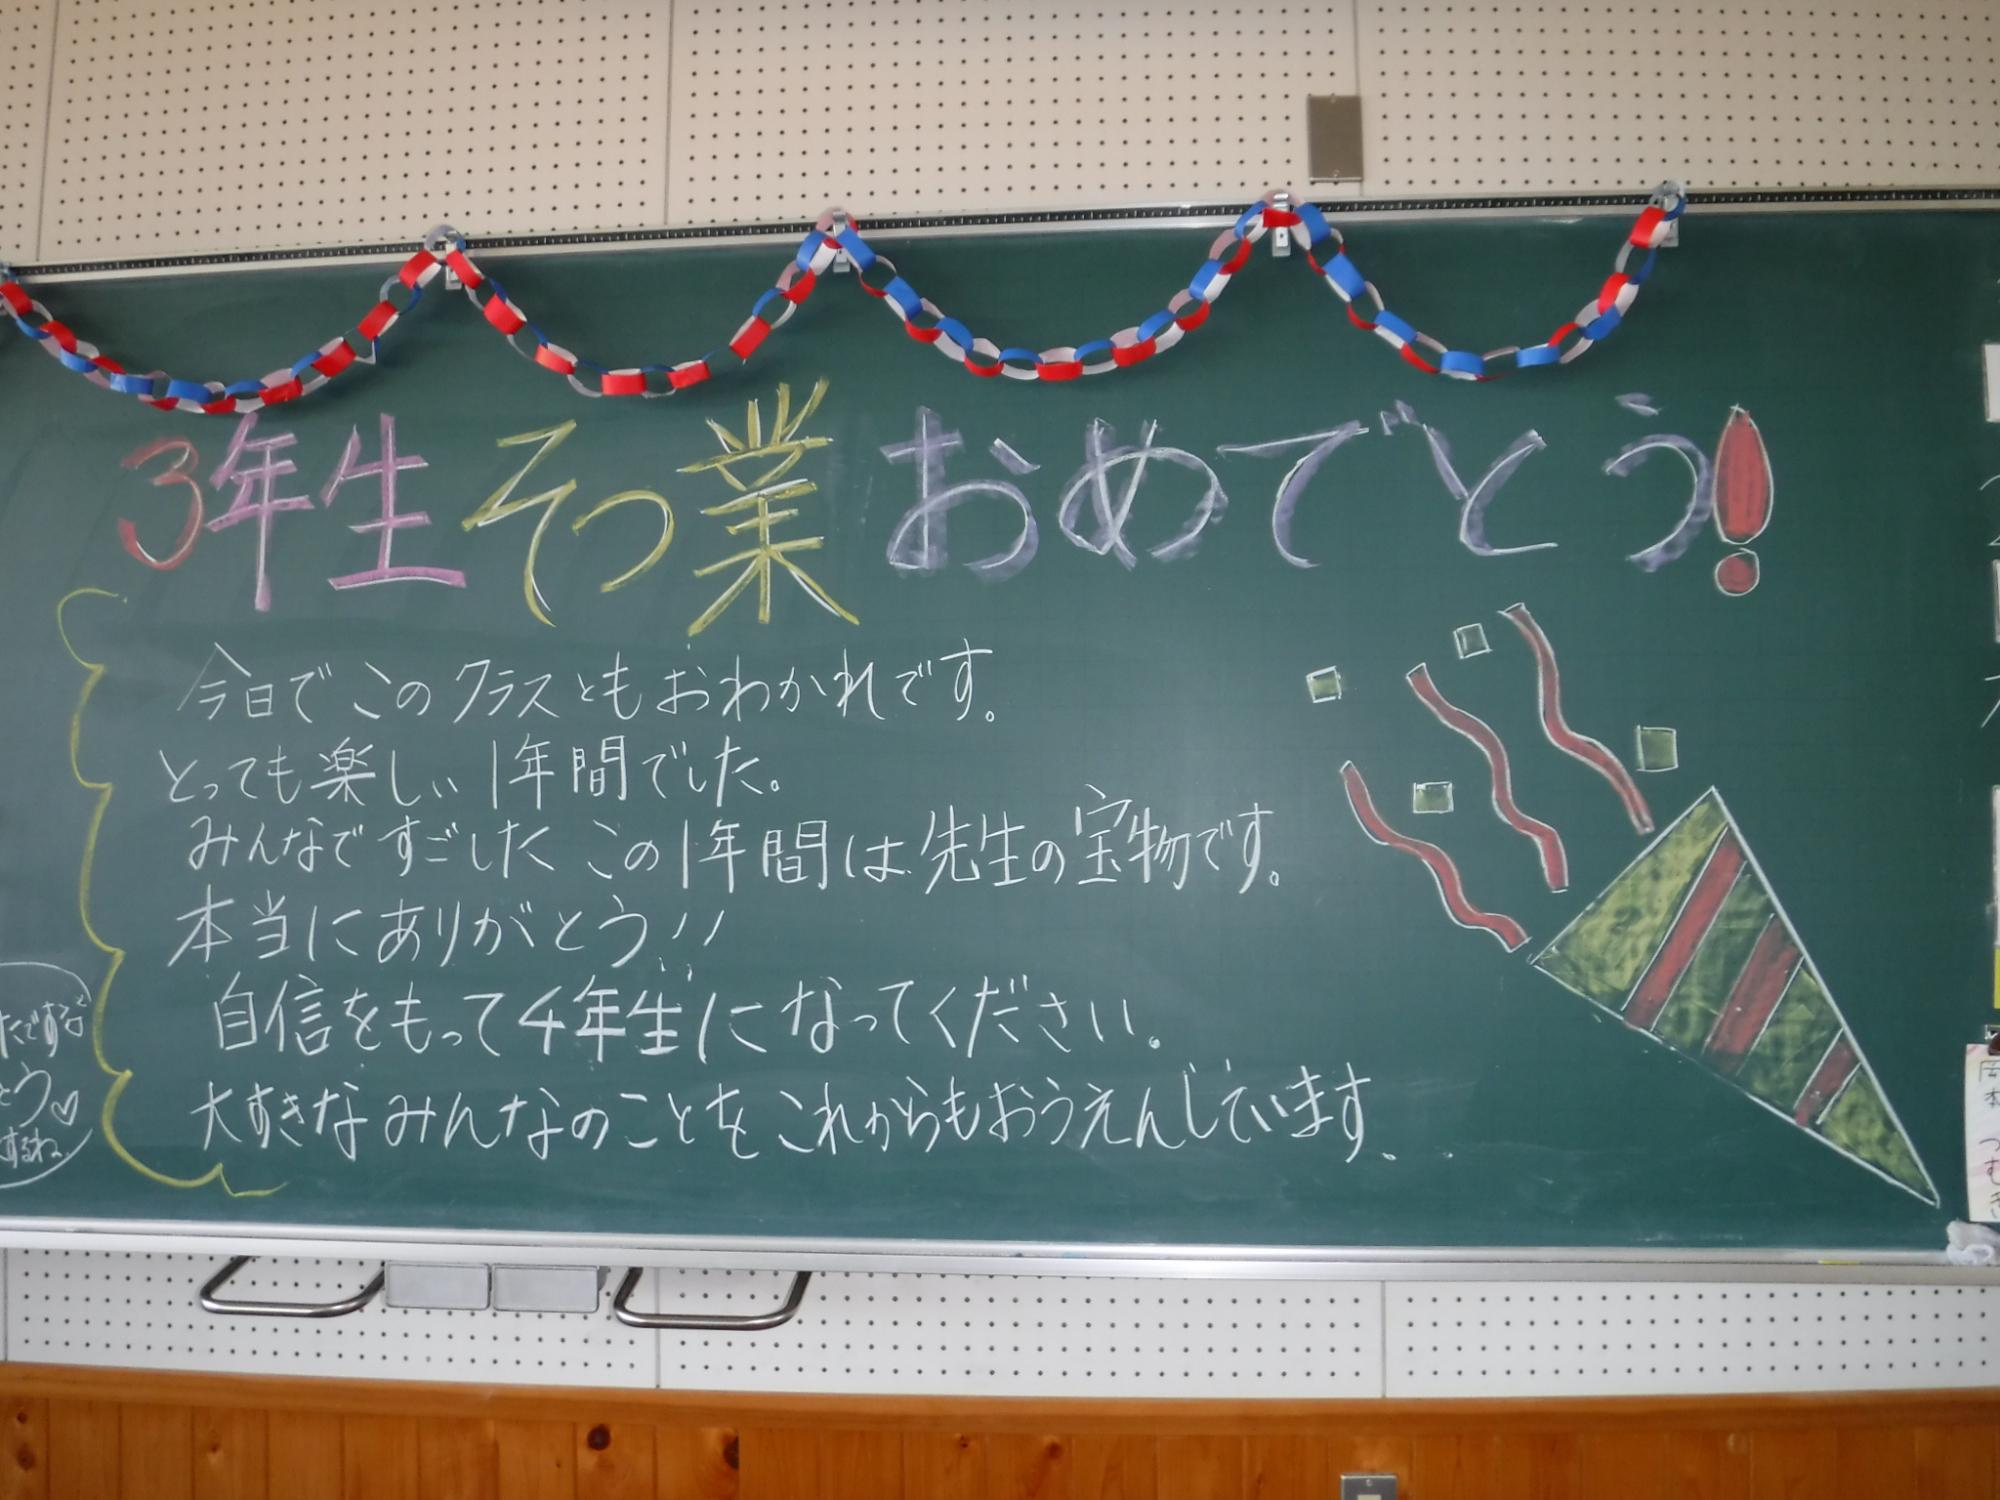 3年生そつ業おめでとう!
今日でこのクラスともおわかれです。
とっても楽しい1年間でした。
みんなですごした この1年間は先生の宝物です。
本当にありがとう!!
自信をもって4年生になってください。
大すきなみんなのことをこれからもおうえんしています。